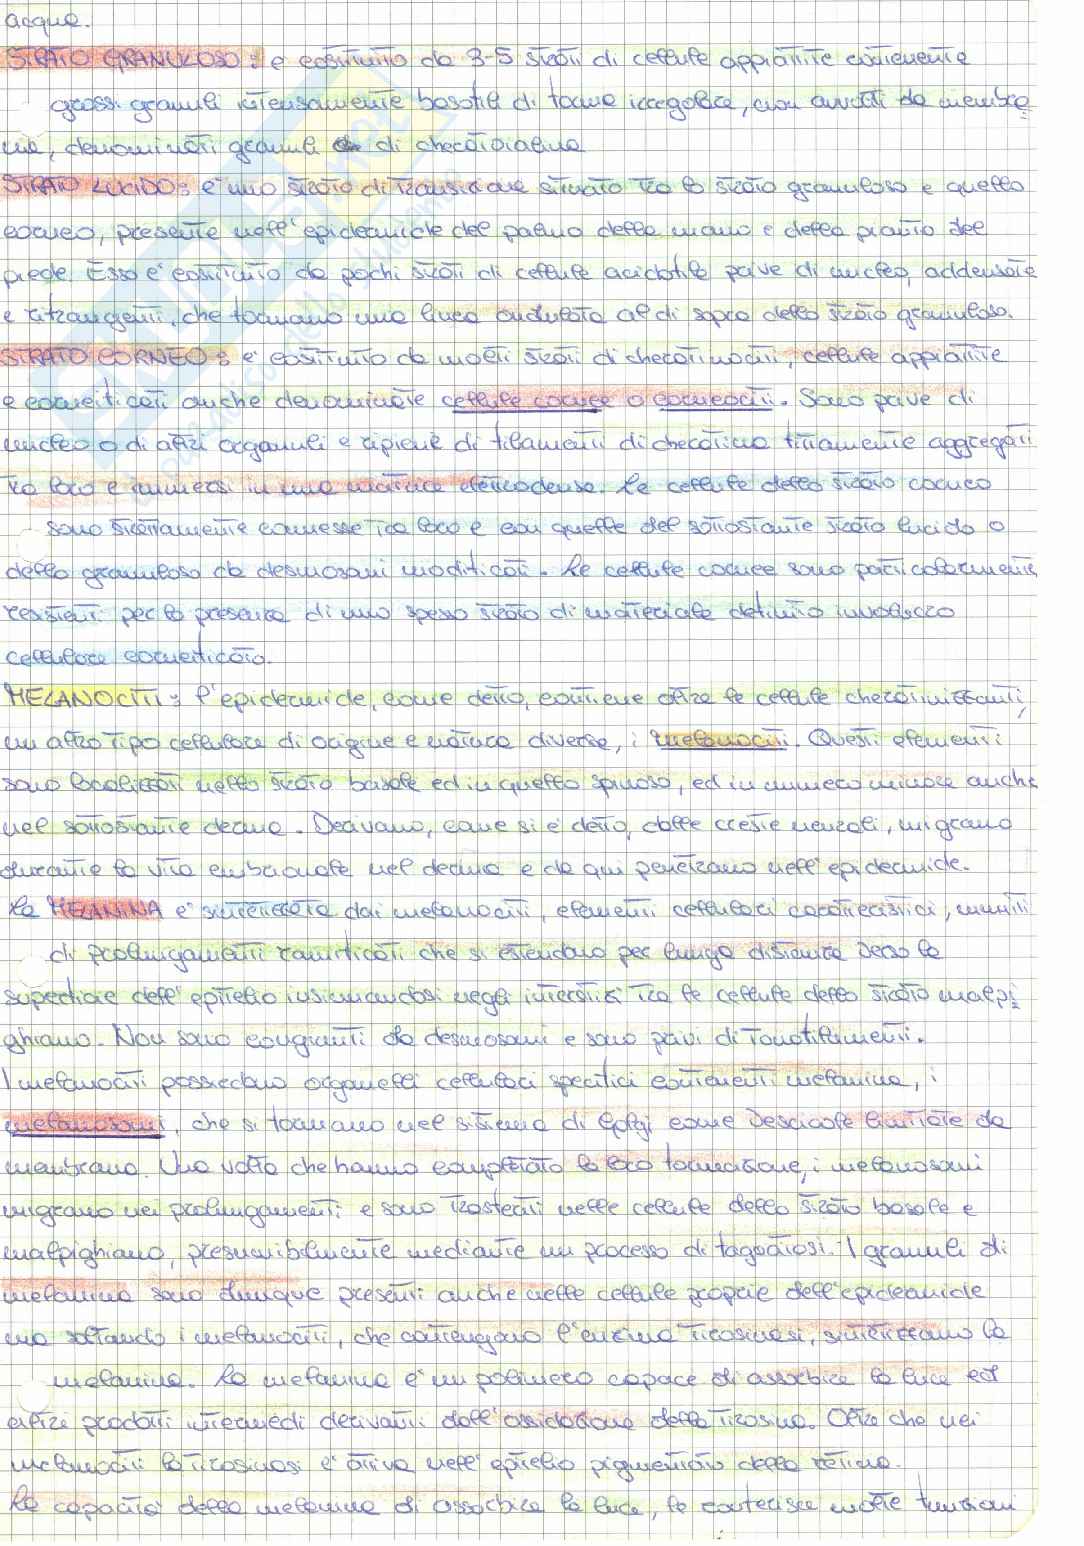 acqua.
STRATO GRANULOSO: e costituito da 3-5 strati di cellule appiattite contenente
grossi granuli intensamente basofili di forma irregolare, non avvolti da membra
na, denominati granuli di cheratoialina
STRATO LUCIDO: e' uno strato di transizione situato tra lo strato granuloso e quello
corneo, presente nell'epidermide del palmo della mano e della pianta del
piede. Esso e' costituito da pochi strati di cellule acidofile prive di nucleo, addensate
e rifrangenti, che formano una linea ondulata al di sopra dello strato granuloso.
STRATO CORNEO: e' costituito da molti strati di cheratinociti, cellule appiattite
e corneificati anche denominate cellule cornee o corneociti. Sono prive di
nucleo o di altri organuli e ripiene di filamenti di cheratina fittamente aggregati
tra loro e immersi in una matrice elettrodensa. Le cellule dello strato corneo
sono strettamente connesse tra loro e con quelle del sottostante strato lucido o
dello granuloso da desmosomi modificati. Le cellule cornee sono particolarmente
resistenti per la presenza di uno spesso strato di materiale definito involucro
cellulare corneificato.
MELANOCITI: l'epidermide, come detto, contiene oltre le cellule cheratinizzanti,
un altro tipo cellulare di origine e natura diverse, i melanociti. Questi elementi
sono localizzati nello strato basale ed in quello spinoso, ed in numero minore anche
nel sottostante derma. Derivano, come si e' detto, dalle creste neurali, migrano
durante la vita embrionale nel derma e da qui penetrano nell'epidermide.
La MELANINA e' sintetizzata dai melanociti, elementi cellulari caratteristici, muniti
di prolungamenti ramificati che si estendono per lunga distanza verso la
superficie dell'epitelio insinuandosi negli interstizi tra le cellule dello strato malpi
ghiano. Non sono congiunti da desmosomi e sono privi di tonofilamenti.
I melanociti possiedono organelli cellulari specifici contenenti melanina, i
melanosomi, che si formano nel sistema di Golgi come vescicole limitate da
membrana. Una volta che hanno completato la loro formazione, i melanosomi
migrano nei prolungamenti e sono trasferiti nelle cellule dello strato basale e
malpighiano, presumibilmente mediante un processo di fagocitosi. I granuli di
melanina sono dunque presenti anche nelle cellule proprie dell'epidermide
ma soltando i melanociti, che contengono l'enzima tirosinasi, sintetizzano la
melanina. La melanina e' un polimero capace di assorbire la luce ed
altri prodotti intermedi derivanti dall'ossidazione della tirosina. Oltre che nei
melanociti la tirosinasi e' attiva nell'epitelio pigmentato della retina.
La capacita' della melanina di assorbire la luce, le conferisce molte funzioni